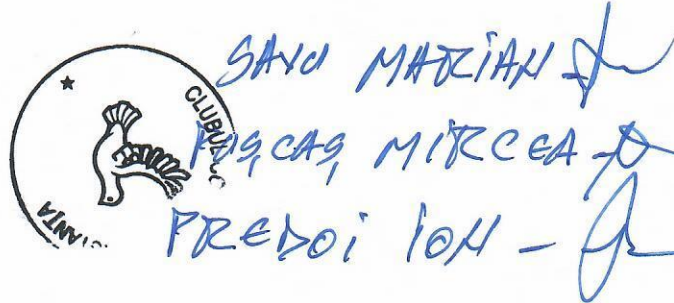 SAVU MARIAN
PUȘCAȘ MIRCEA -
PREDOI ION -
CLUBUL